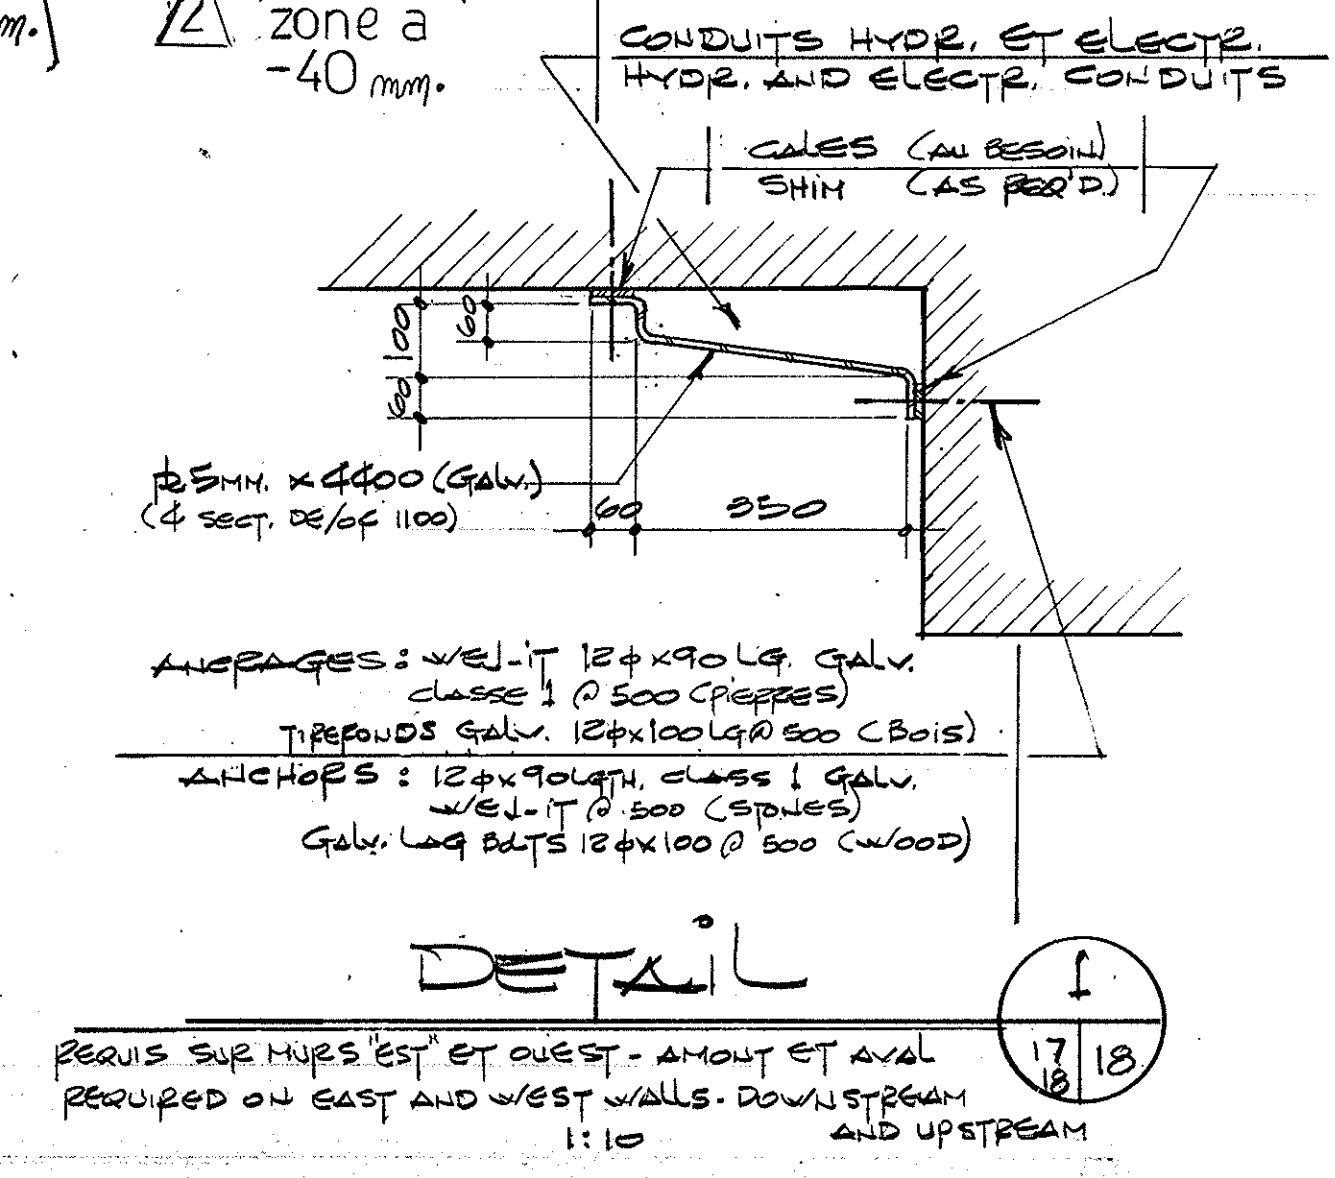 m.]
2 zone a
-40 mm.
CONDUITS HYDR. ET ELECTR.
HYDR. AND ELECTR. CONDUITS
CALES (AU BESOIN)
SHIM (AS REQ'D.)
100
60
60
℄5MM. x 4400 (GALV.)
(4 SECT. DE/OF 1100)
60 350
ANCRAGES : WEJ-IT 12ϕx90 LG. GALV.
CLASSE 1 @ 500 (PIERRES)
TIREFONDS GALV. 12ϕx100 LG @ 500 (BOIS)
ANCHORS : 12ϕx90LGTH. CLASS 1 GALV.
WEJ-IT @ 500 (STONES)
GALV. LAG BOLTS 12ϕX100 @ 500 (WOOD)
DETAIL
1
17
18
18
REQUIS SUR MURS "EST" ET OUEST - AMONT ET AVAL
REQUIRED ON EAST AND WEST WALLS - DOWNSTREAM
AND UPSTREAM
1:10